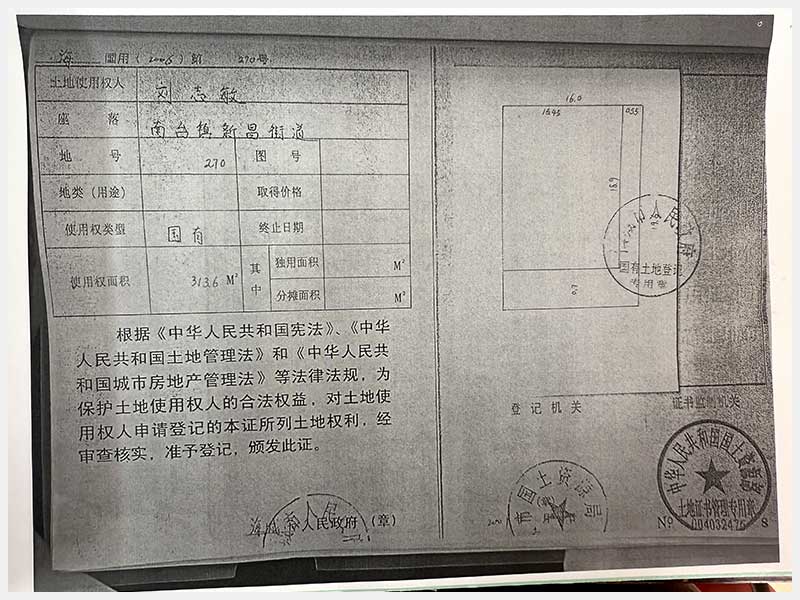 海 国用(2006)第 270号
土地使用权人 刘志敏
座 落 南台镇新昌街道
地 号 270 图 号
地类（用途） 取得价格
使用权类型 国有 终止日期
使用权面积 313.6 M² 其中 独用面积 M²
分摊面积 M²
根据《中华人民共和国宪法》、《中华
人民共和国土地管理法》和《中华人民共
和国城市房地产管理法》等法律法规，为
保护土地使用权人的合法权益，对土地使
用权人申请登记的本证所列土地权利，经
审查核实，准予登记，颁发此证。
人民政府（章）
16.0
15.45 0.55
18.9
人民政府
国有土地登记
专用章
登记机关
证书监制机关
市国土资源局
中华人民共和国国土资源部
土地证书管理专用章
№ 004032475